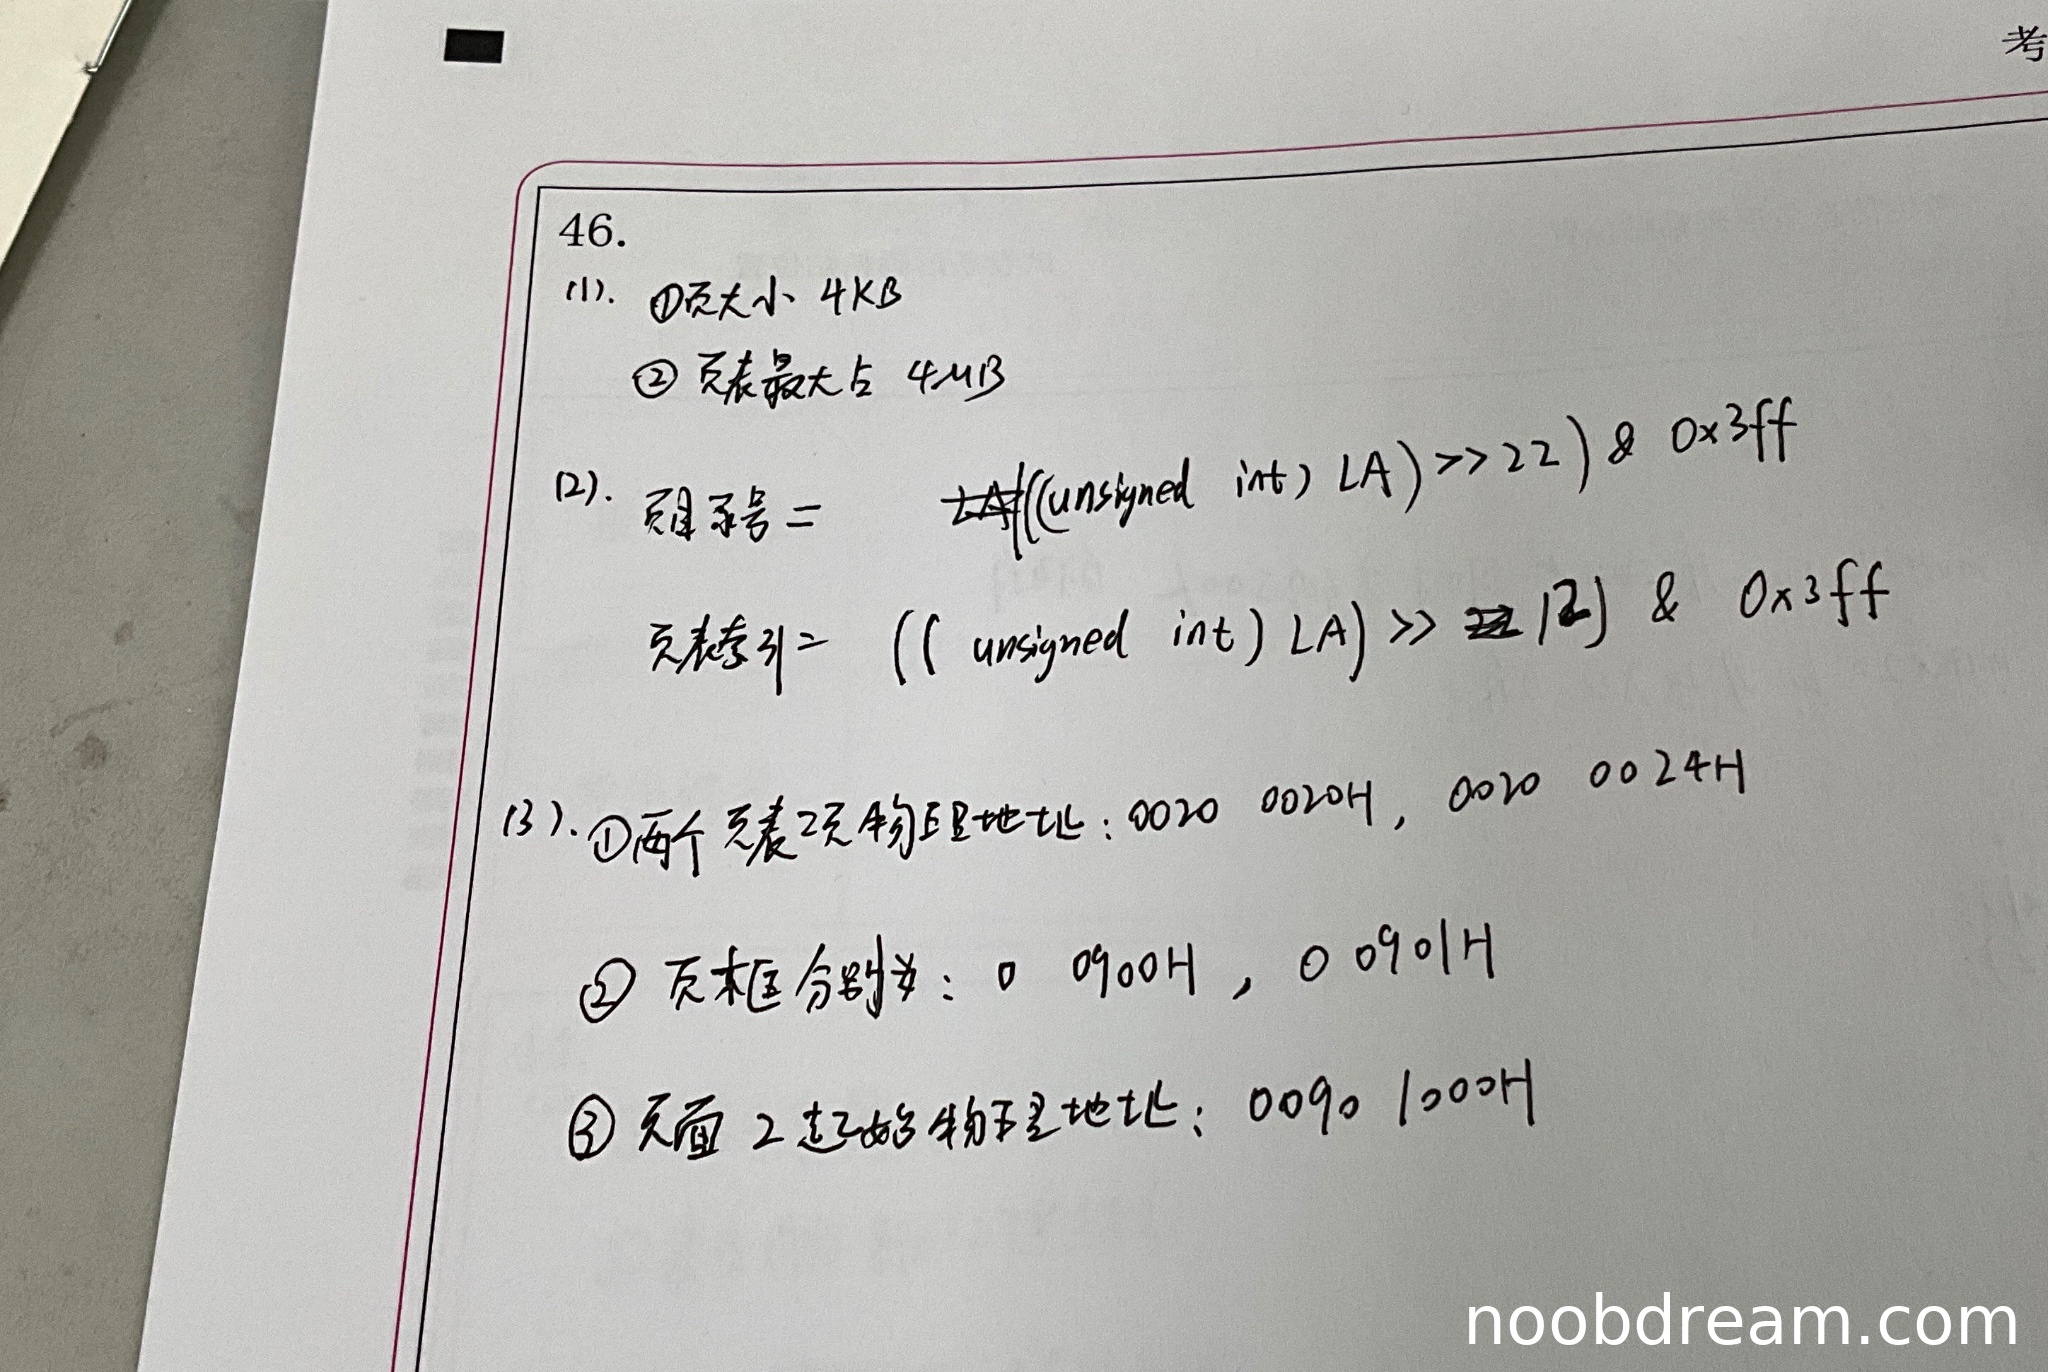 考
46.
(1). ①页大小 4KB
② 页表最大占 4MB
(2). 页目录号 = ((unsigned int) LA) >> 22) & 0x3ff
页表索引 = (( unsigned int) LA) >> 12) & 0x3ff
(3). ①两个页表项物理地址: 0020 0020H, 0020 0024H
② 页框分别为: 0 0900H, 0 0901H
③ 页面 2 起始物理地址: 0090 1000H
noobdream.com